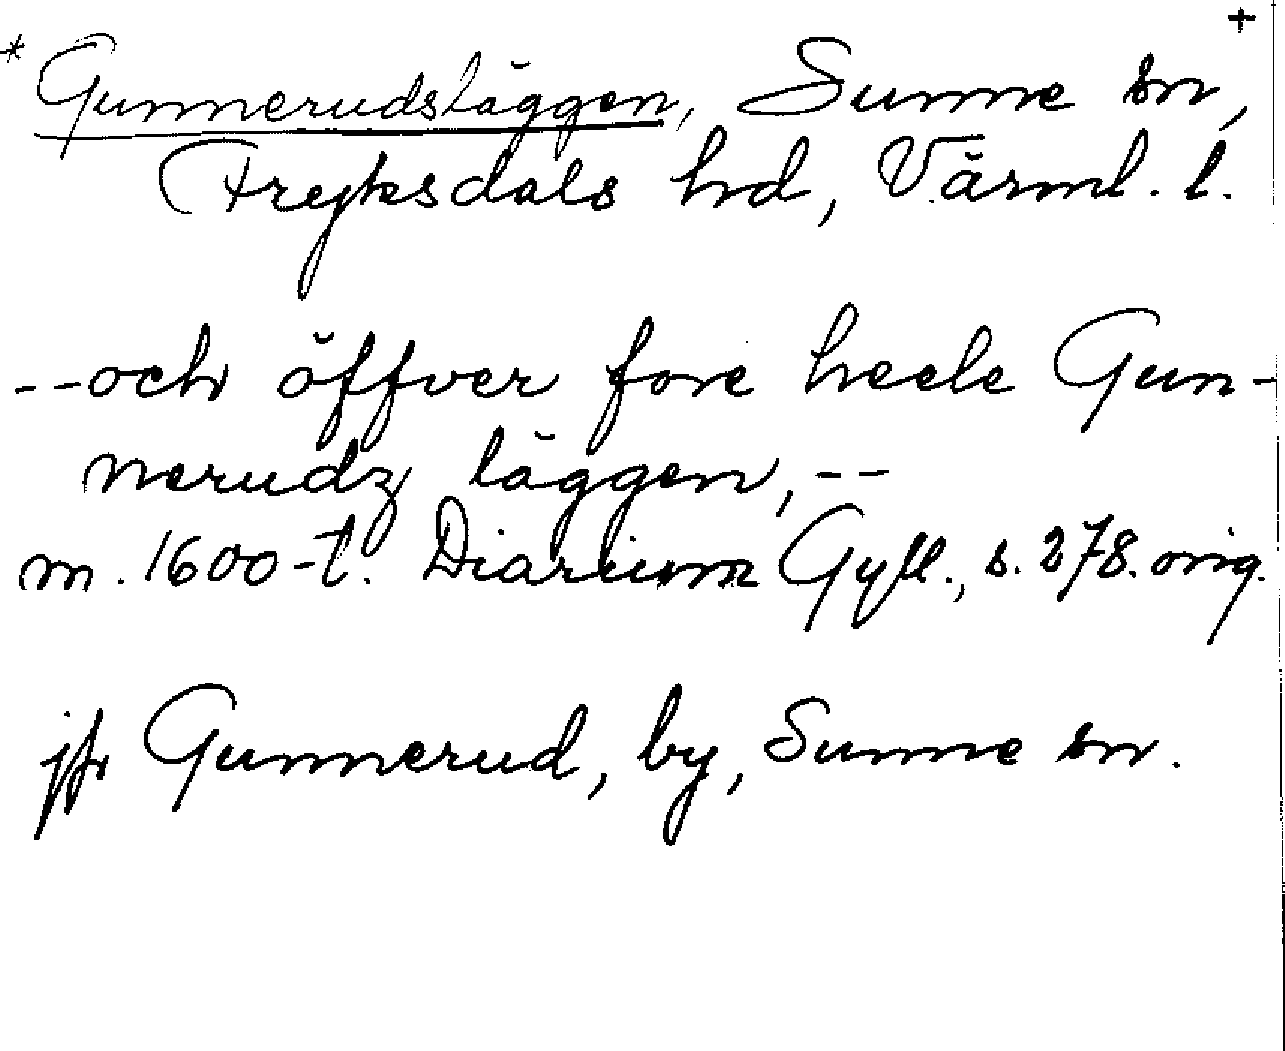 +
* Gunnerudsläggen, Sunne sn,
Fryksdals hd, Värml. l.
--och öffver fore heele Gun-
nerudz läggen, --
m. 1600-t. Diarium Gyll., s. 278. orig.
jfr Gunnerud, by, Sunne sn.